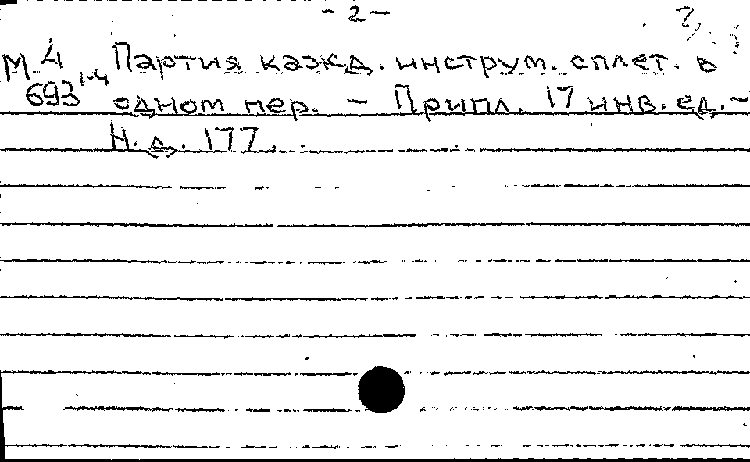 - 2 -
М 4 Партия кажд. инструм. сплет. в
693 1-4 одном пер. - Припл. 17 инв. ед. -
Н. д. 177.